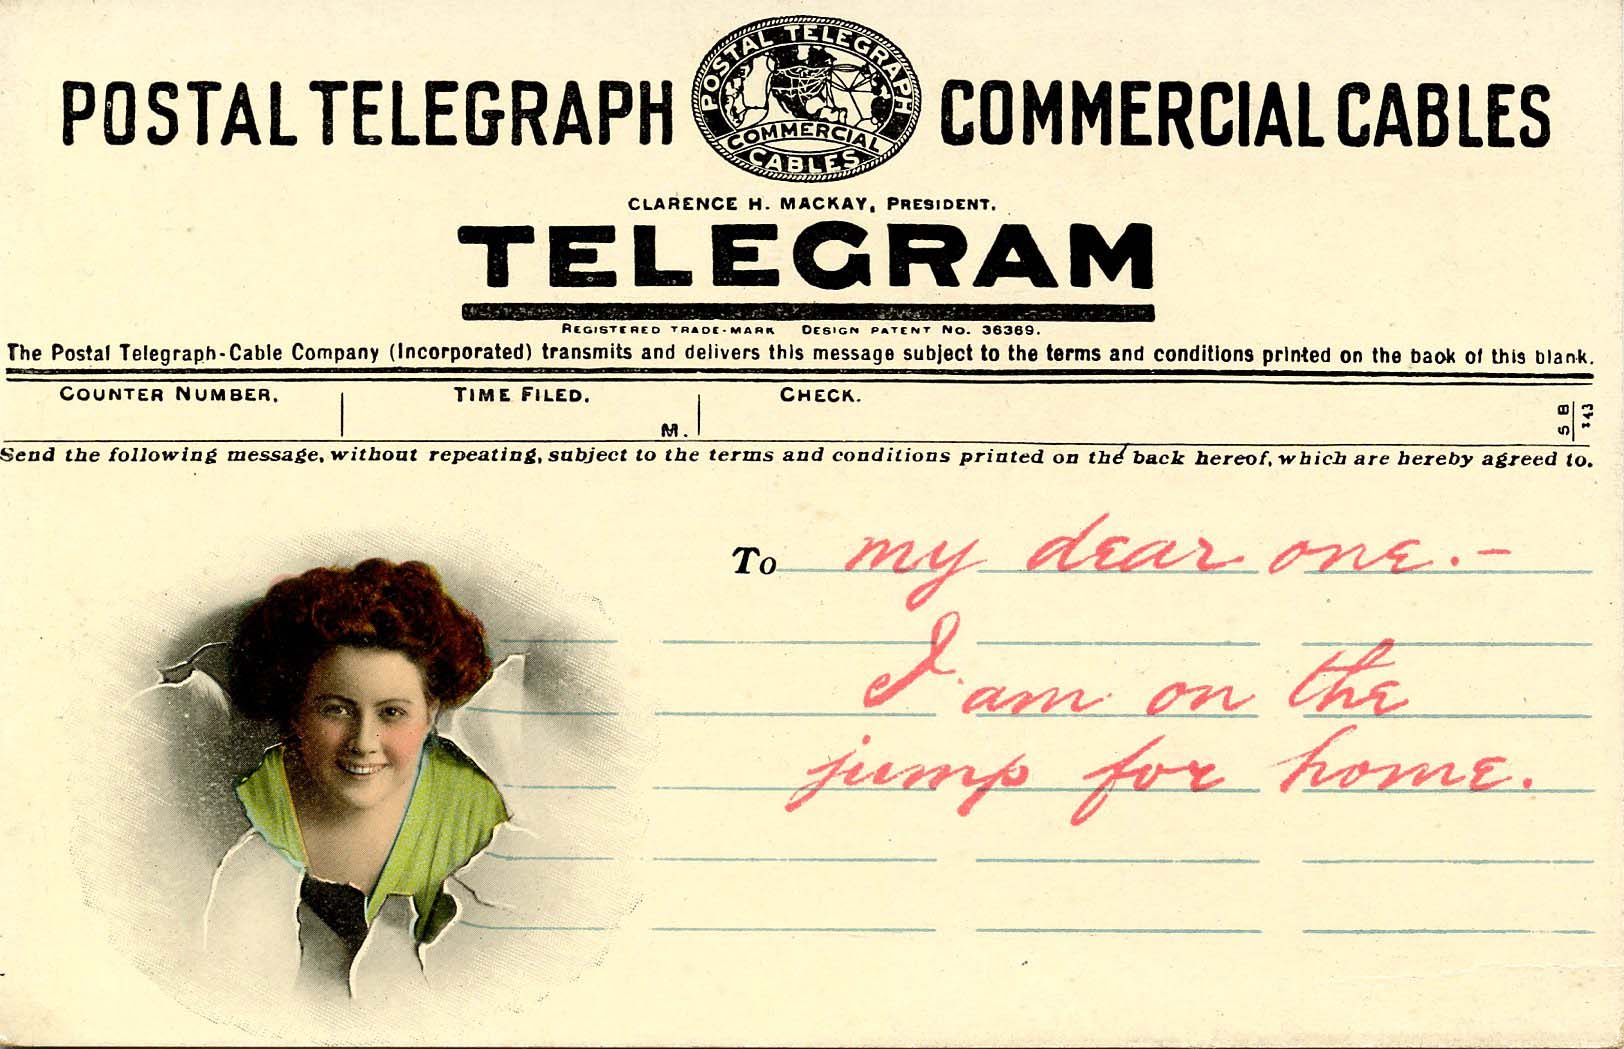 POSTAL TELEGRAPH COMMERCIAL CABLES
POSTAL TELEGRAPH
COMMERCIAL
CABLES
CLARENCE H. MACKAY, PRESIDENT.
TELEGRAM
REGISTERED TRADE-MARK DESIGN PATENT No. 36369.
The Postal Telegraph-Cable Company (Incorporated) transmits and delivers this message subject to the terms and conditions printed on the back of this blank.
COUNTER NUMBER. TIME FILED. CHECK.
M.
5 B
143
Send the following message, without repeating, subject to the terms and conditions printed on the back hereof, which are hereby agreed to.
To my dear one.-
I am on the
jump for home.